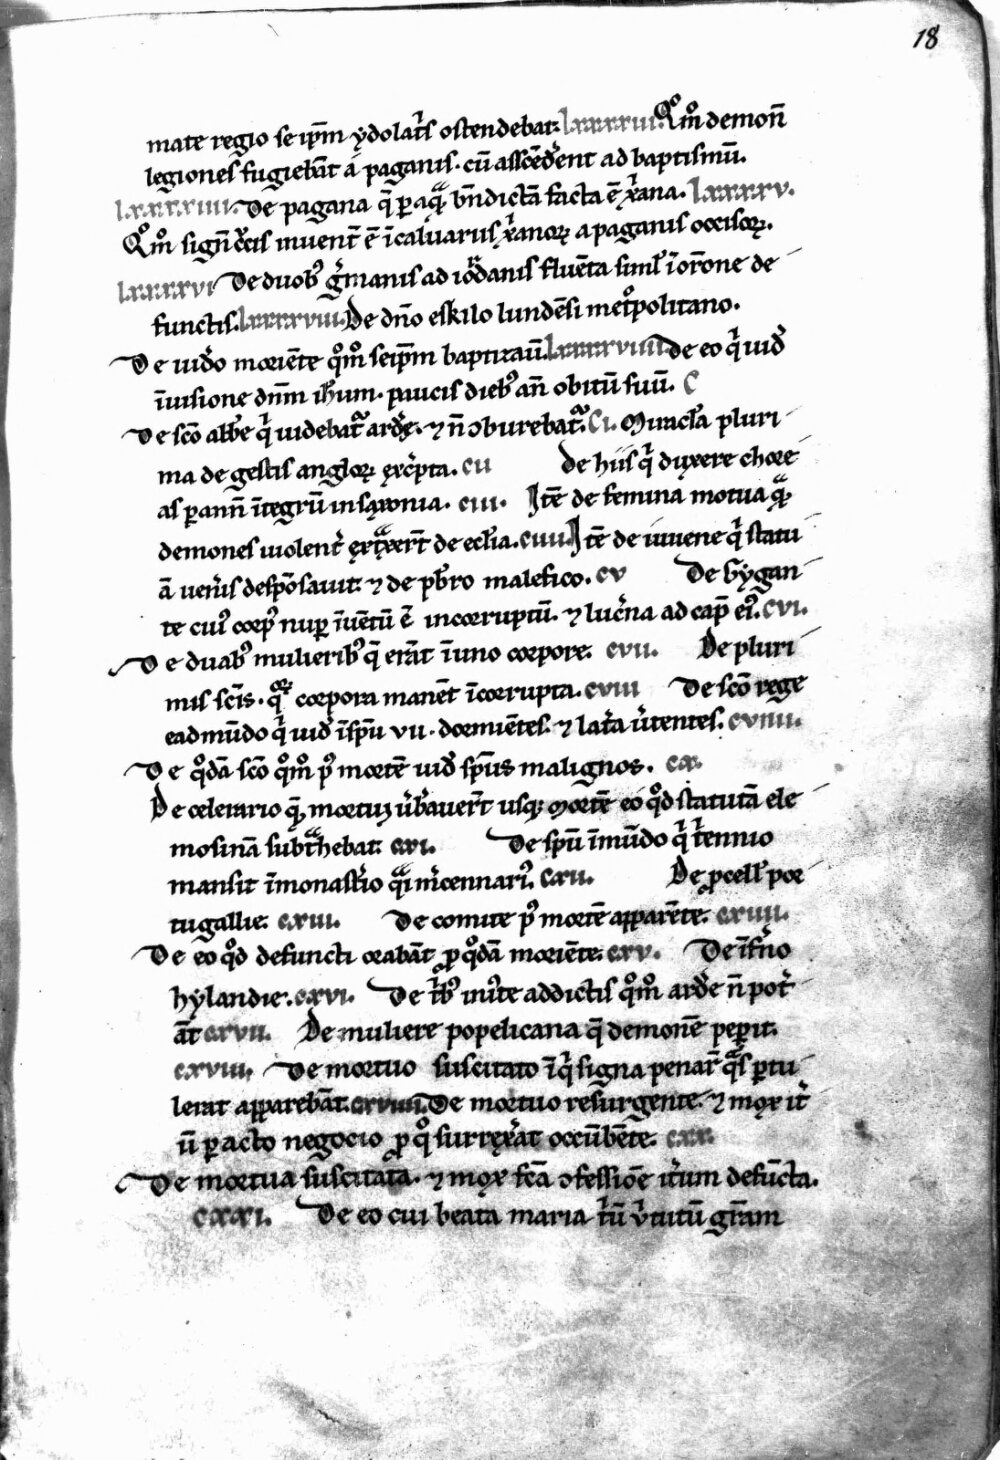 18
mate regio se ip̄m ydolat̓s ostendebat. lxxxxiii. Qͦm̊ demon̄
legiones fugieba̅t a̅ paganis. cu̅ asse̅de̅rent ad baptismu̅.
lxxxxiiii. De pagana q̄ ꝑ aqͣ̅ bn̄dicta̅ facta e̅ xp̄iana. lxxxxv.
Qͦm̊ sign̄ c̓cis inuent̄ e̅ i̅ caluariis xp̄ianoꝝ a paganis occisoꝝ.
lxxxxvi De duobꝰ g̓manis ad iordanis flue̅ta simł i̅ or̅one de
functis. lxxxxvii. De dn̄o eskilo lunde̅si met̓politano.
De uid̓o morie̅te qͦm̊ seip̄m baptizau̅. lxxxxviiii. De eo qͥ uid̓
i̅uisione dn̄m ih̄um. paucis diebꝰ an̄ obitu̅ suu̅. C
De sc̄o abb̄e qͥ uidebatᷣ ard̓e. ⁊ n̄ ↄburebatᷣ. Ci. Miracl̓a pluri
ma de gestis angloꝝ exc̓pta. cii De hiis qͥ duxere chore
as ꝑ ann̄ i̅tegru̅ in saxonia. ciii. Ite̅ de femina mortua qͣ̅
demones uiolent̓ extͣxer̄t de eccl̓ia. ciiii. Ite̅ de iuuene qͥ statu
a̅ uen̓is despo̅sauit. ⁊ de p̄b̓ro malefico. cv De Gygan
te cuiꝰ corpꝰ nuꝑ i̅ue̅tu̅ e̅ incorruptu̅. ⁊ luc̓na ad cap̄ eiꝰ. cvi.
De duabꝰ mulieribꝰ q̄ era̅t i̅ uno corpore. cvii. De pluri
mis sc̄is. qͦꝝ corpora mane̅t i̅corrupta. cviii De sc̄o rege
eadmu̅do qͥ uid̓ i̅ sp̄u vii. dormie̅tes. ⁊ lat̓a u̓tentes. cviiii.
De qͦda̅ sc̄o qͦm̊ pꝰ morte̅ uid̓ sp̄us malignos. cx.
De celerario qͣ̅ mortuꝰ u̓b̓auer̄t usqꝫ morte̅ eo qͦd statuta̅ ele
mosina̅ subtͣhebat. cxi. De sp̄u i̅mu̅do qͥ t̓ennio
mansit i̅ monast̓io qͣi m̓cennariꝰ. cxii. De ꝓcell̓ por
tugallie. cxiii. De comite pꝰ morte̅ appare̅te. cxiiii.
De eo qͦd defuncti oraba̅t ꝓ qͦda̅ morie̅te. cxv. De i̅f̓no
hylandie. cxvi. De t̓bꝰ in iu̓te addictis qͦm̊ ard̓e n̄ pot̓
a̅t cxvii. De muliere popelicana q̄ demone̅ peꝑit.
cxviii. De mortuo suscitato i̅ qͦ signa penaꝝ qͣs ꝑtu
lerat appareba̅t. cxviiii. De mortuo resurgente. ⁊ mox it̓
u̅ ꝑ acto negocio ꝓ qͦ surrex̓at occu̅be̅te. cxx.
De mortua suscitata. ⁊ mox fc̄a ↄfessio̅e it̓um defu̅cta.
cxxi. De eo cui beata maria t̓u̅ u̓tutu̅ gr̄am